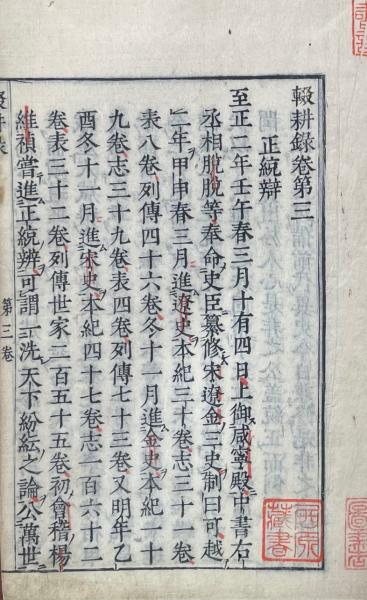 輟耕錄卷第三
正統辯
至正二年壬午春三月十有四日上御咸寧殿中書右
丞相脫脫等奉命史臣纂修宋遼金三史制曰可越
二年甲申春三月進遼史本紀三十卷志三十一卷
表八卷列傳四十六卷冬十一月進金史本紀一十
九卷志三十九卷表四卷列傳七十三卷又明年乙
酉冬十一月進宋史本紀四十七卷志一百六十二
卷表三十二卷列傳世家二百五十五卷初會稽楊
維禎嘗進正統辨可謂一洗天下紛紜之論公萬世
第三卷
藏書